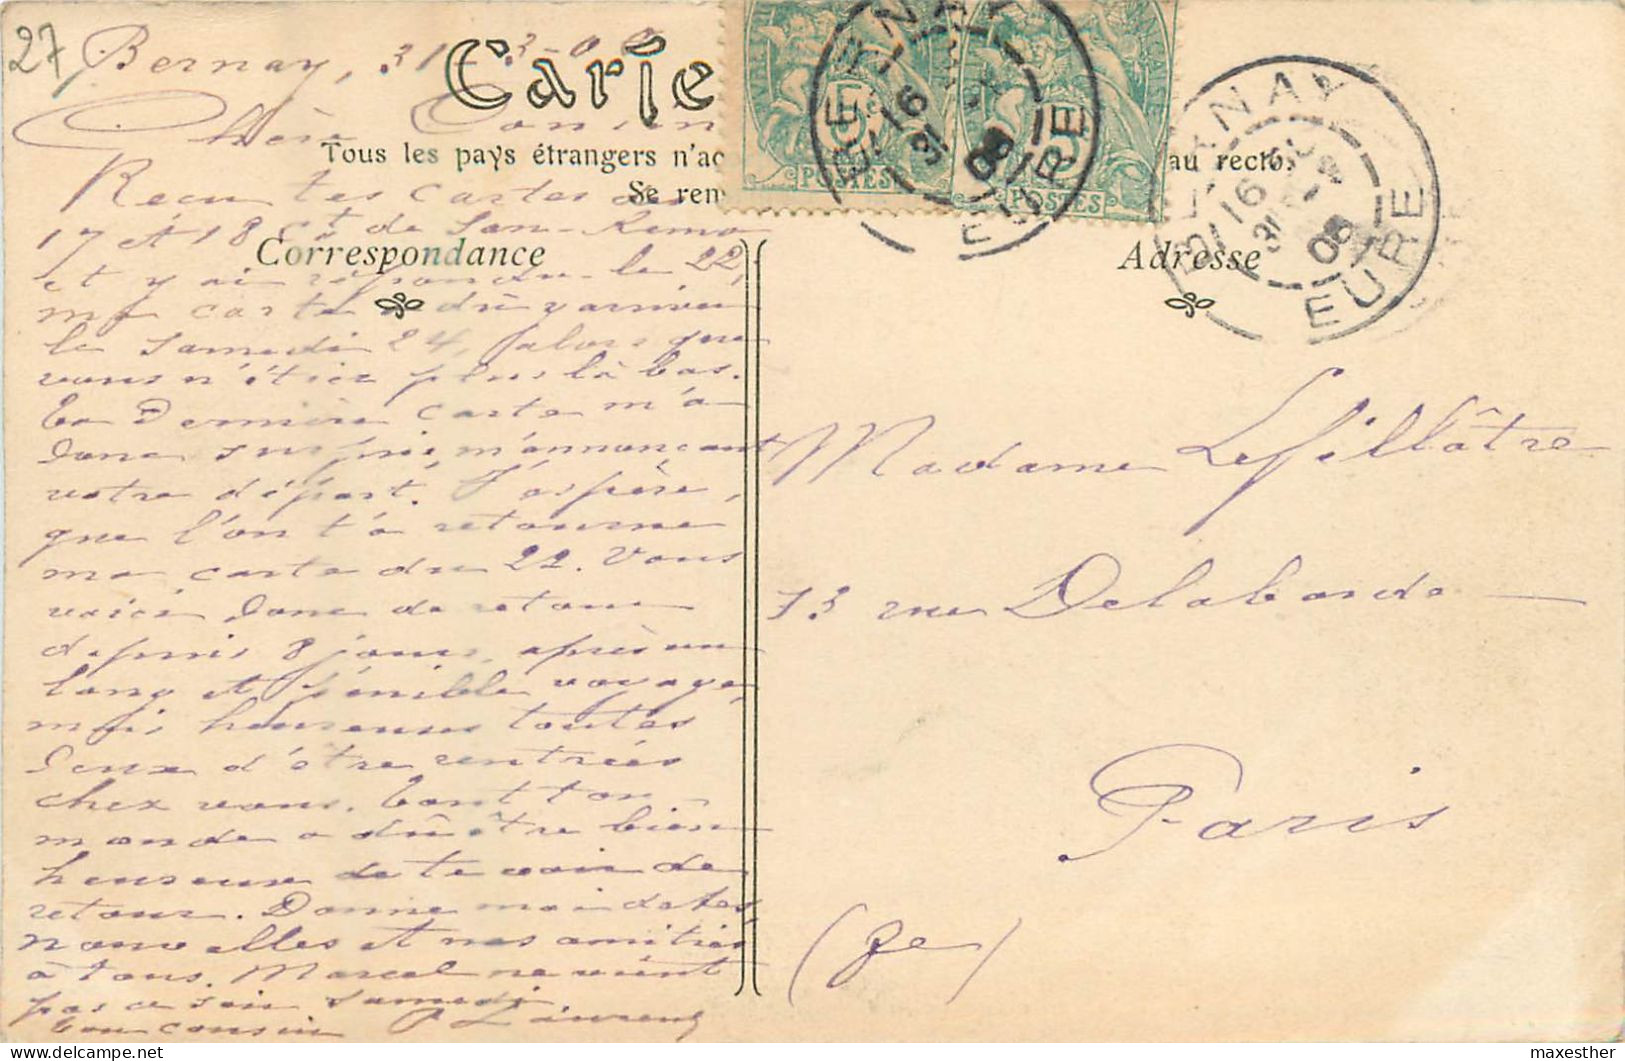 27
Bernay, 31-3-0
Carte
Chère Cousine
Tous les pays étrangers n'ac
au recto,
Se ren
Reçu tes cartes des
17 et 18 et de San-Remo
Correspondance
et y ai répondu le 22,
ma carte a dû y arriver
le samedi 24, alors que
vous n'étiez plus là bas.
Ta dernière carte m'a
donc surpris m'annonçant
votre départ. J'espère,
que l'on t'a retourné
ma carte du 22. Vous
voici donc de retour
depuis 8 jours, après un
long et pénible voyage,
mais heureuses toutes
deux d'être rentrées
chez vous. Tout ton
monde a dû être bien
heureux de te voir de
retour. Donne moi de tes
nouvelles et nos amitiés
à tous. Marcel ne vient
pas ce soir samedi.
Ton cousin P Laurent
5
POSTES
POSTES
BERNAY
16
31
08
EURE
BERNAY
16
31
08
EURE
Adresse
Madame Lefillâtre
73 rue Delaborde
Paris
(8e)
maxesther